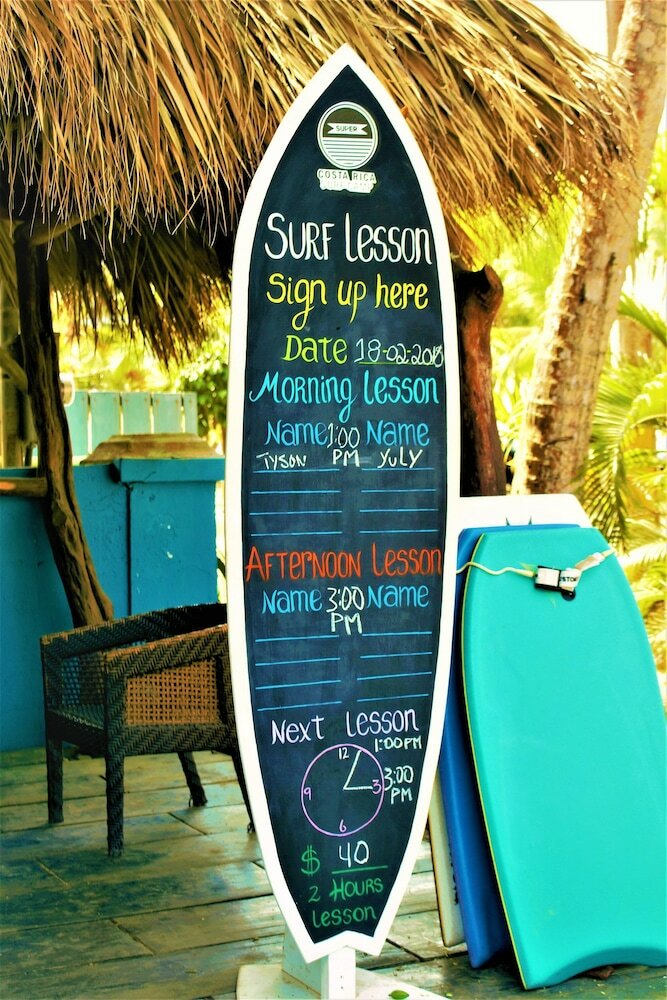 SUPER
COSTA RICA
SURF CAMP
SURF LESSON
Sign up here
DATE 18-02-2018
MORNING LESSON
NAME 1:00 PM NAME
TYSON YULY
AFTERNOON LESSON
NAME 3:00 PM NAME
NEXT LESSON
1:00PM
12
3
6
9
3:00
PM
$ 40
2 HOURS
LESSON